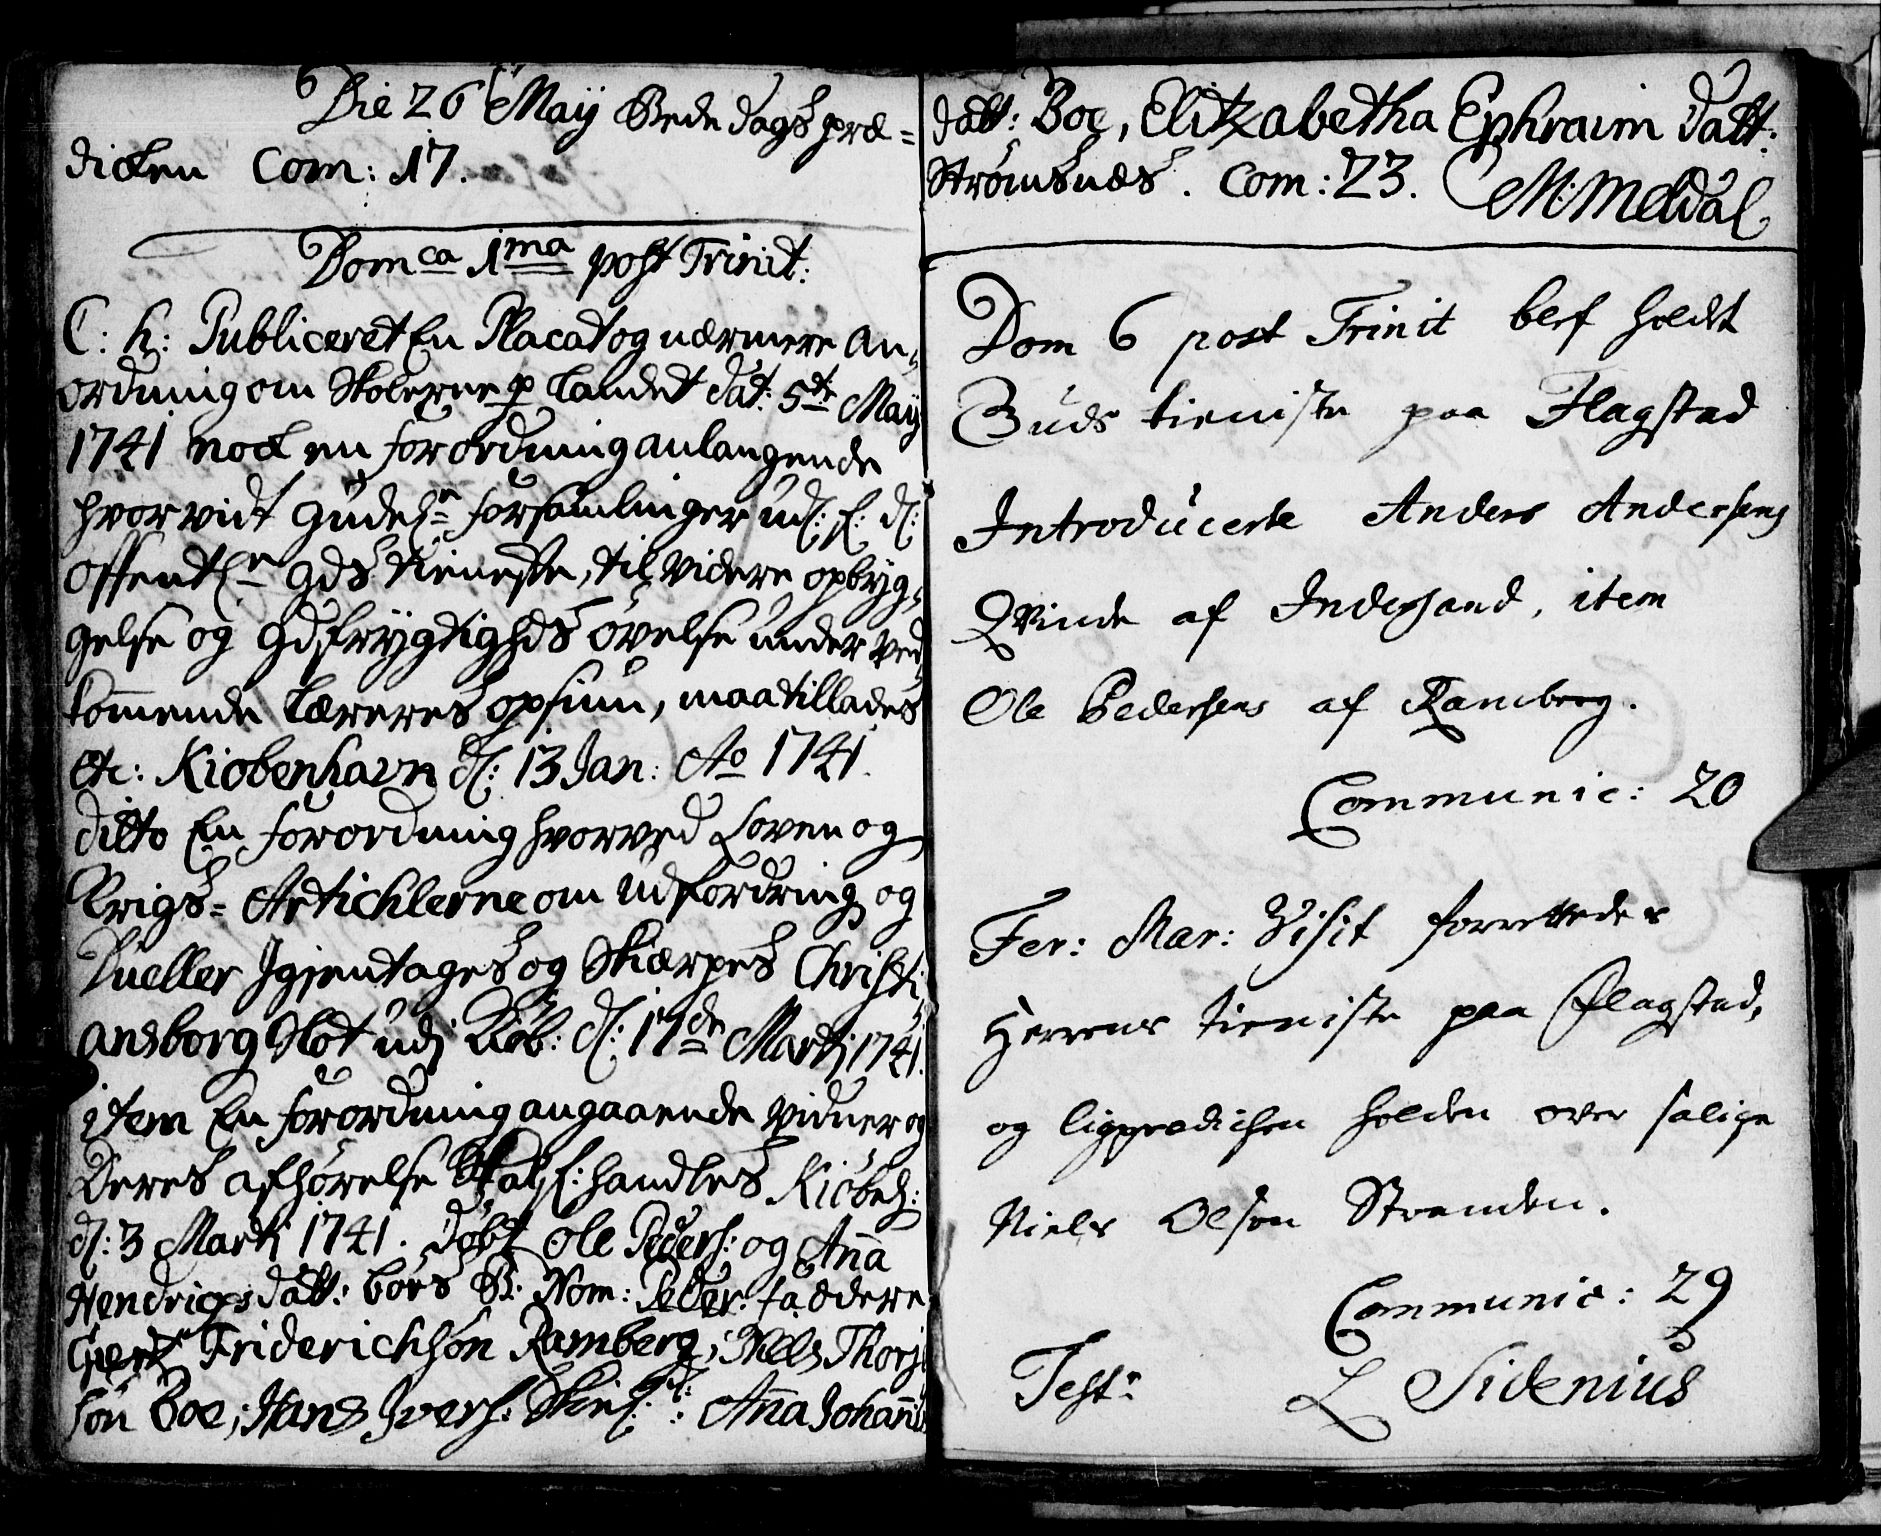 Die 26 Maÿ Bededags præ=
dicken Com: 17.
Dom ca 1ma post Trinit:
C: h: Publiceret En Placat og nærmere An=
ordning om Skolerne p Landet dat: 5te Maÿ
1741 nock en forordning anlangende
hvorvidt gudel:n forsamlinger ud: f: d:
offentl:e gds tieneste, til videre opbÿg=
gelse og gdsfrÿgtighds øvelse under ved
kom̅ende Læreres opsiun, maa tillades
etc: Kiobenhavn d: 13 Jan: Ao 1741.
ditto En forordning hvorved Loven og
Krigs= Artichlerne om Udfordring og
Dueller Igientages og Skierpes Christi
ansborg Slot udj Kiöb: d: 17de Martj 1741.
item En forordning angaaende Vidner og
Deres afhørelse skal f: handles Kiöbh:
d: 3 Martj 1741. döbt Ole Peders: og An̅a
Hendrigsdatt: børs B: Nom: Peder. faddere
Giert Friderichsön Ramberg; Niels Thorj
sön Boe; Hans Ivers: : An̅a Johan̅
datt: Boe, Elitzabetha Ephraim datt:
Strømsnæs. Com: 23. M: Meldal
Dom 6 post Trinit blef holdt
Guds tieniste paa Flagstad
Introducerte Anders Andersens
Qvinde af Indersand, item
Ole Pedersens af Ramberg.
Communic: 20
Fer: Mar: Visit forrettedes
Herrens tieniste paa Flagstad,
og ligprædichen holden over salige
Niels Olson Stranden.
Communic: 29
Test: L Sidenius